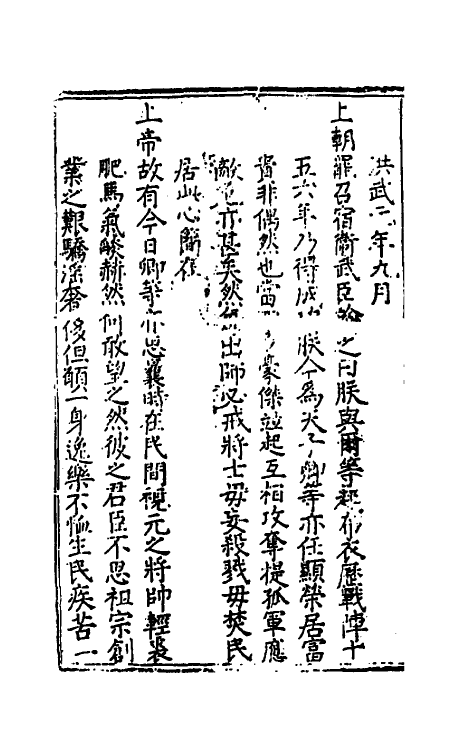 洪武二年九月
上朝罷召宿衛武臣諭之曰朕與爾等起布衣歷戰陣十
五六年乃得成 朕今為天子爾等亦任顯榮居富
貴非偶然也當 豪傑並起互相攻奪提孤軍應
敵危亦甚矣然 出師必戒將士毋妄殺戮毋焚民
居此心簡在
上帝故有今日卿等亦思曩時在民間視元之將帥輕裘
肥馬氣焰赫然何敢望之然彼之君臣不思祖宗創
業之艱驕淫奢侈但顧一身逸樂不恤生民疾苦一